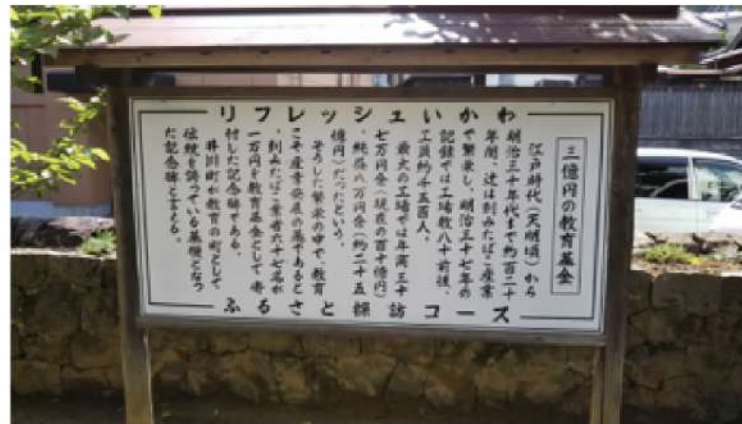 リフレッシュいかわ
三億円の教育基金
江戸時代(天明頃)から
明治三十年代まで約百二十
年間、辻は刻みたばこ産業
で繁栄し、明治三十七年の
記録では工場数八十前後、
工員約千五百人、
最大の工場では年商三十
七万円余(現在の百十億円)
、純係八万円余(約二十五
億円)だったという。
そうした繁栄の中で、教育
こそ産業発展の基であるとき
、刻みたばこ業者六十七名が
一万円を教育基金として寄
付した記念碑である。
井川町が教育の町として
伝統を誇っている基礎となっ
た記念碑と言える。
ふるさと探訪コース